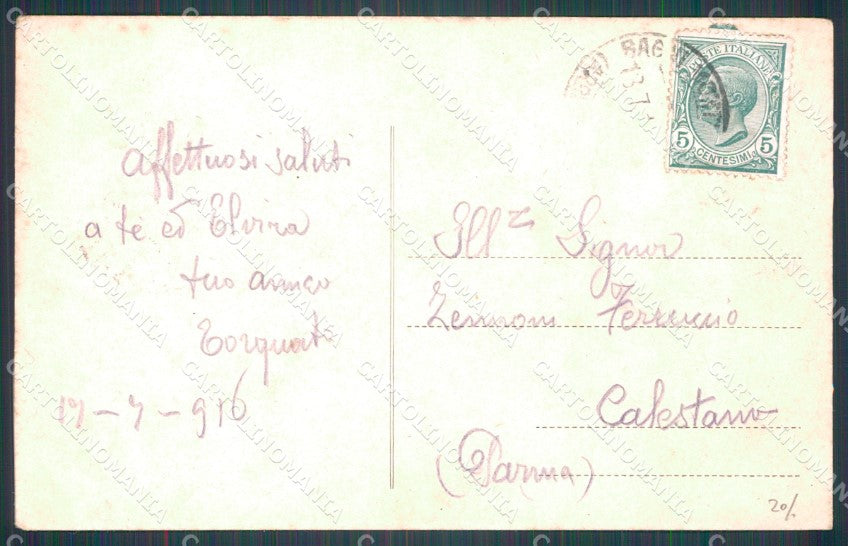 Affettuosi saluti
a te ed Elvira
tuo amico
Torquato
17-7-916
POSTE ITALIANE
5 5
CENTESIMI
Ill Signor
Zennoni Ferruccio
Calestano
(Parma)
20/
CARTOLINOMANIA